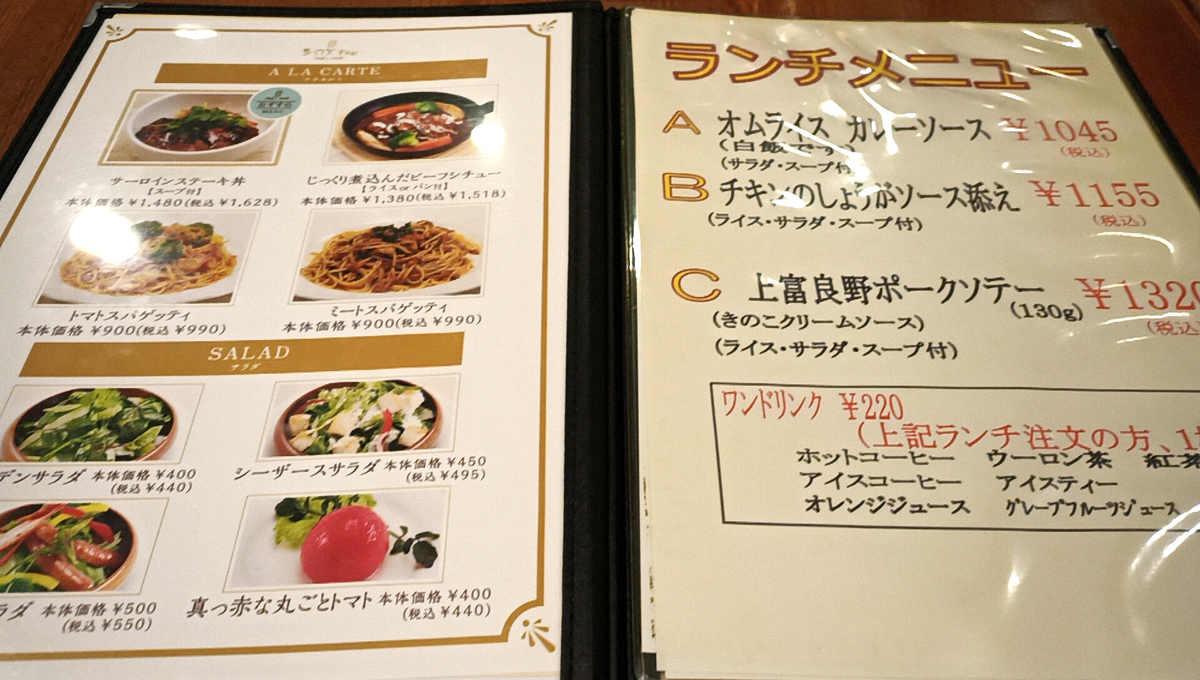 A LA CARTE
アラカルト
おすすめ
MENU
サーロインステーキ丼
【スープ付】
本体価格 ¥1,480(税込 ¥1,628)
じっくり煮込んだビーフシチュー
【ライス or パン付】
本体価格 ¥1,380(税込 ¥1,518)
トマトスパゲッティ
本体価格 ¥900(税込 ¥990)
ミートスパゲッティ
本体価格 ¥900(税込 ¥990)
SALAD
サラダ
デンサラダ 本体価格 ¥400
(税込 ¥440)
シーザースサラダ 本体価格 ¥450
(税込 ¥495)
ラダ 本体価格 ¥500
(税込 ¥550)
真っ赤な丸ごとトマト 本体価格 ¥400
(税込 ¥440)
ランチメニュー
A オムライス カレーソース ¥1045
(白飯です) (税込)
(サラダ・スープ付)
B チキンのしょうがソース添え ¥1155
(ライス・サラダ・スープ付) (税込)
C 上富良野ポークソテー (130g) ¥1320
(きのこクリームソース) (税込
(ライス・サラダ・スープ付)
ワンドリンク ¥220
(上記ランチ注文の方、
ホットコーヒー ウーロン茶 紅茶
アイスコーヒー アイスティー
オレンジジュース グレープフルーツジュース